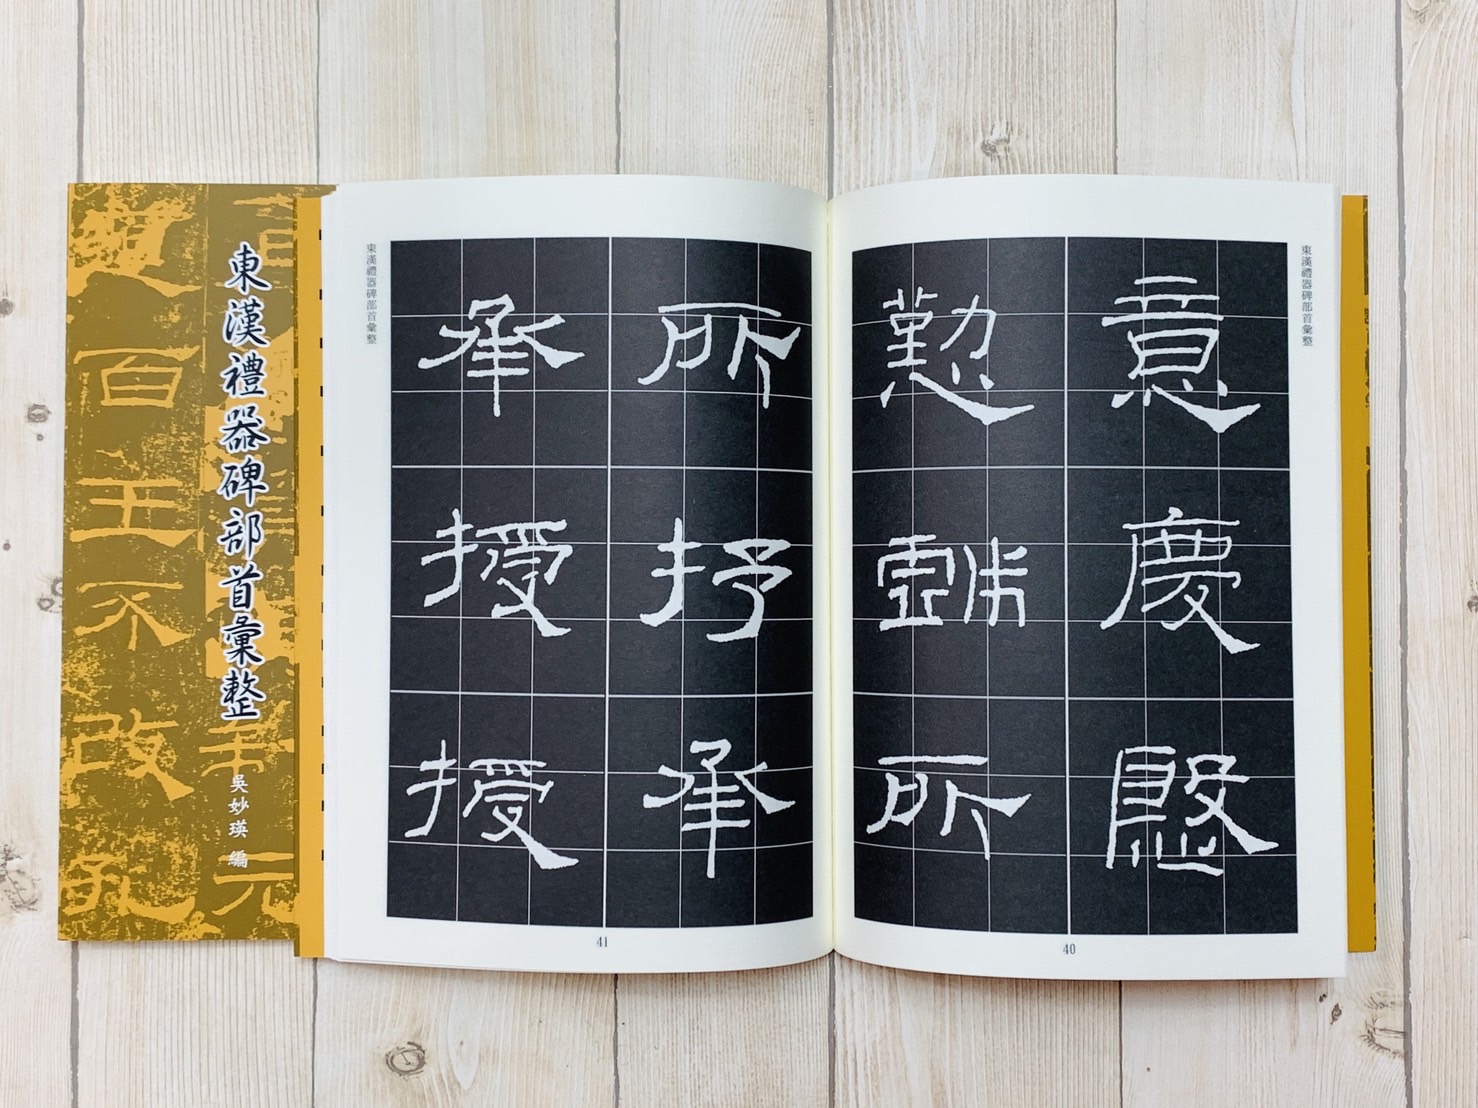 東漢禮器碑部首彙整
吳妙瑛 編
百王不改
元
東漢禮器碑部首彙整
意慶慇
懃所
40
所抒承
承授授
東漢禮器碑部首彙整
41